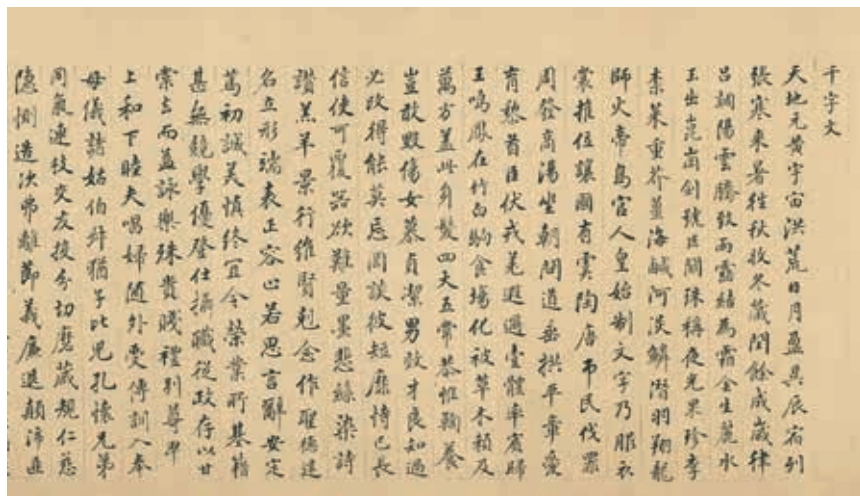 千字文
天地元黄宇宙洪荒日月盈昃辰宿列
張寒来暑往秋收冬藏閏餘成歲律
呂調陽雲騰致雨露結為霜金生麗水
玉出崑崗劍號巨闕珠稱夜光果珍李
柰菜重芥薑海鹹河淡鱗潛羽翔龍
師火帝鳥官人皇始制文字乃服衣
裳推位讓國有虞陶唐弔民伐罪
周發商湯坐朝問道垂拱平章愛
育黎首臣伏戎羌遐邇壹體率賓歸
王鳴鳳在竹白駒食場化被草木賴及
萬方蓋此身髮四大五常恭惟鞠養
豈敢毀傷女慕貞潔男效才良知過
必改得能莫忘罔談彼短靡恃己長
信使可覆器欲難量墨悲絲染詩
讚羔羊景行維賢剋念作聖德建
名立形端表正容止若思言辭安定
篤初誠美慎終宜令榮業所基籍
甚無競學優登仕攝職從政存以甘
棠去而益詠樂殊貴賤禮別尊卑
上和下睦夫唱婦隨外受傅訓入奉
母儀諸姑伯叔猶子比兒孔懷兄弟
同氣連枝交友投分切磨箴規仁慈
隱惻造次弗離節義廉退顛沛匪